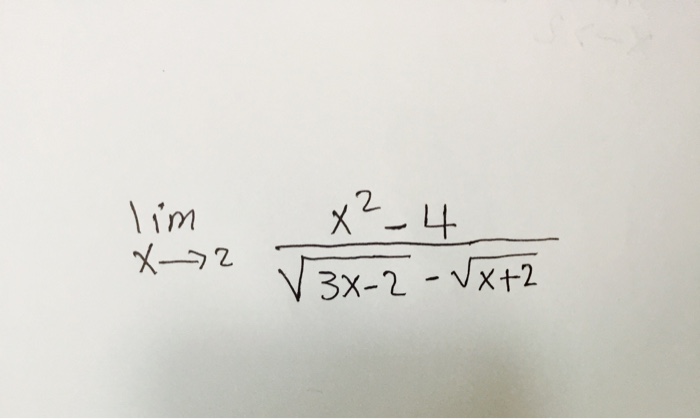 lim x→2 (x² - 4) / (√(3x-2) - √(x+2))